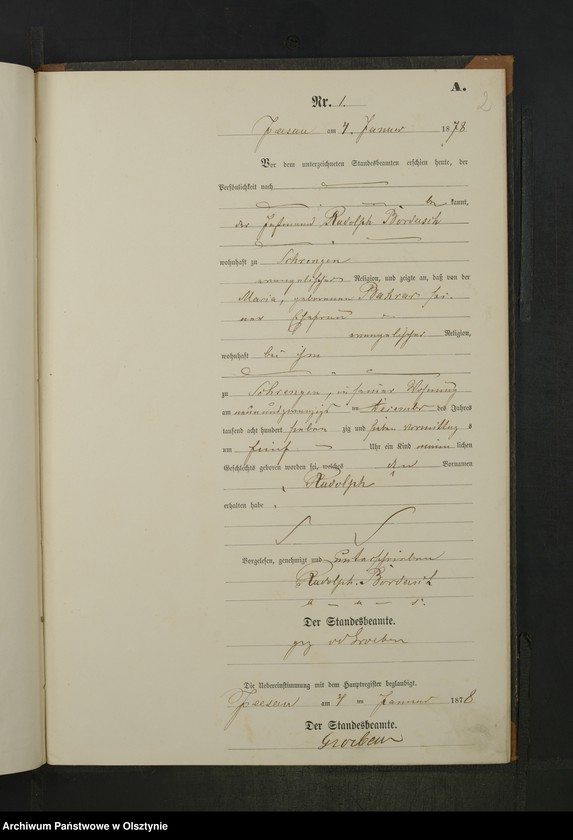 A.
2
Nr. 1.
am 4. Januar 1878
Vor dem unterzeichneten Standesbeamten erschien heute, der
Persönlichkeit nach
be kannt,
der Rudolph
wohnhaft zu
evangelischer Religion, und zeigte an, daß von der
Maria, geborenen sei-
ner Ehefrau
evangelischer Religion,
wohnhaft bei ihm
zu in seiner Wohnung
am neun und zwanzigst en December des Jahres
tausend acht hundert sieben zig und sieben vormittag s
um fünf Uhr ein Kind männ lichen
Geschlechts geboren worden sei, welches den Vornamen
Rudolph
erhalten habe.
Vorgelesen, genehmigt und unterschrieben
Rudolph
Der Standesbeamte.
gez
Die Uebereinstimmung mit dem Hauptregister beglaubigt.
am 4 ten Januar 1878
Der Standesbeamte.
Groeben
Archiwum Państwowe w Olsztynie